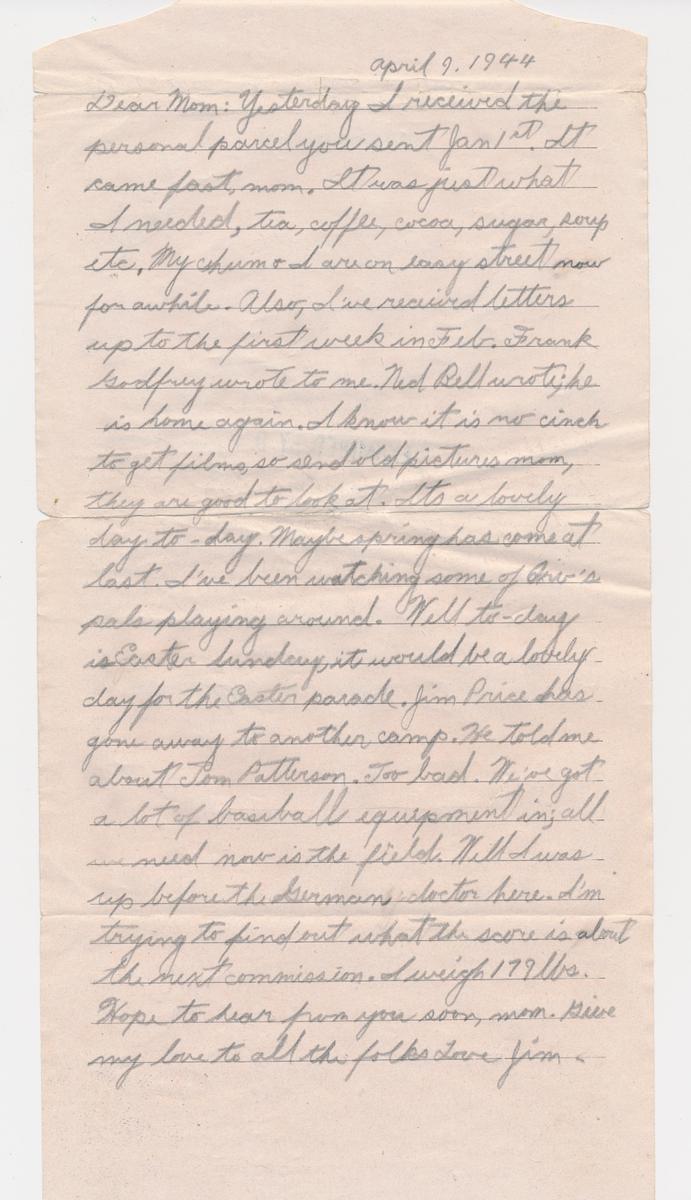 April 9. 1944
Dear Mom: Yesterday I received the
personal parcel you sent Jan 1st. It
came fast, mom. It was just what
I needed, tea, coffee, cocoa, sugar, soup
etc. My chum & I are on easy street now
for awhile. Also, I've received letters
up to the first week in Feb. Frank
Godfrey wrote to me. Ned Bell wrote; he
is home again. I know it is no cinch
to get films, so send old pictures mom,
they are good to look at. Its a lovely
day to-day. Maybe spring has come at
last. I've been watching some of Orv's
pals playing around. Well to-day
is Easter Sunday, it would be a lovely
day for the Easter parade. Jim Price has
gone away to another camp. He told me
about Tom Patterson. Too bad. We've got
a lot of baseball equipment in; all
we need now is the field. Well I was
up before the German doctor here. I'm
trying to find out what the score is about
the next commission. I weigh 179 lbs.
Hope to hear from you soon, mom. Give
my love to all the folks Love Jim.